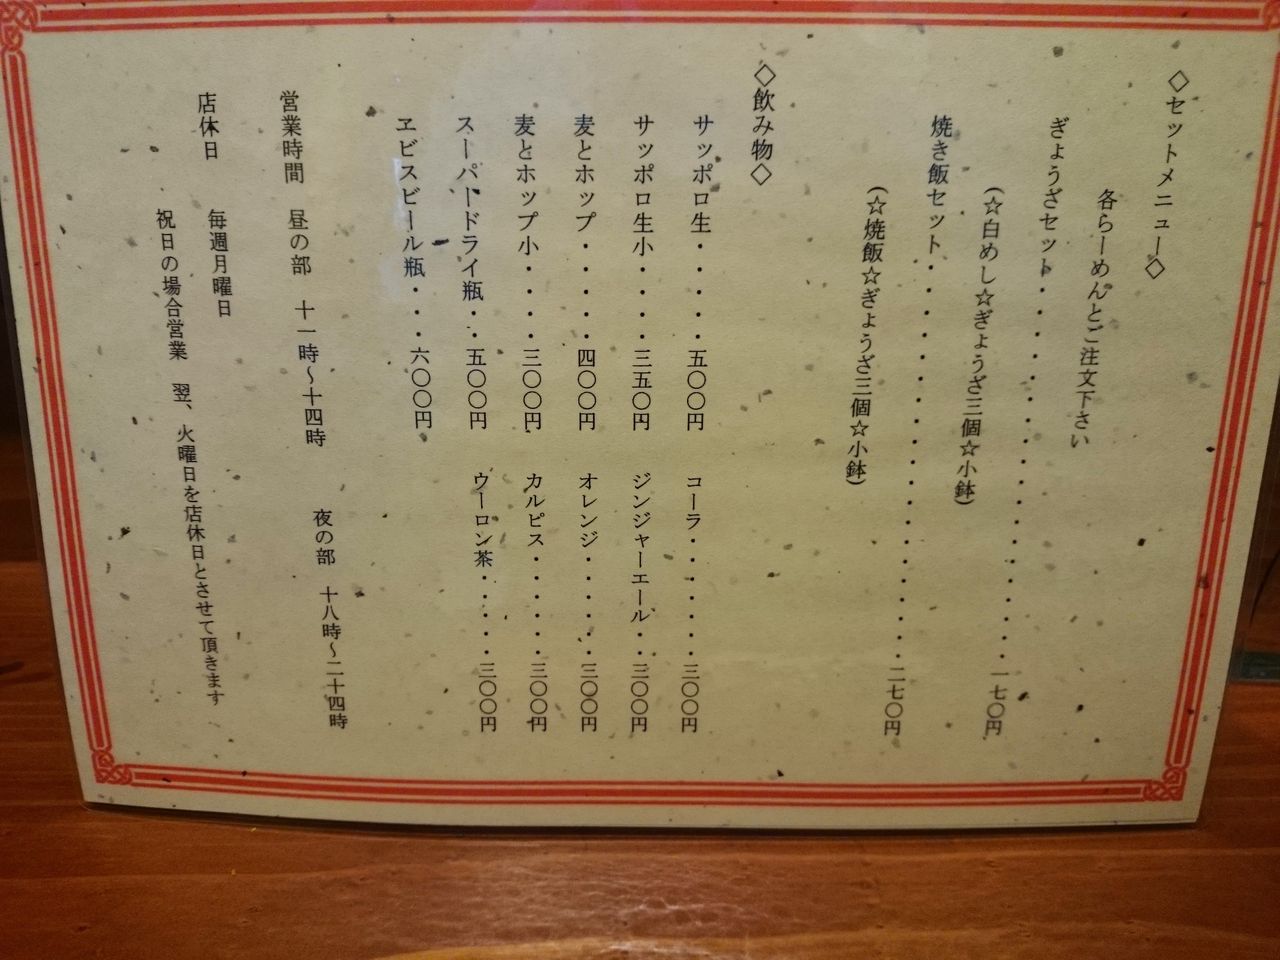 ◇セットメニュー◇
各らーめんとご注文下さい
ぎょうざセット・・・・・・・・・・・・・・・・一七〇円
(☆白めし☆ぎょうざ三個☆小鉢)
焼き飯セット・・・・・・・・・・・・・・・・・・二七〇円
(☆焼飯☆ぎょうざ三個☆小鉢)
◇飲み物◇
サッポロ生・・・・・五〇〇円
コーラ・・・・・・・三〇〇円
サッポロ生小・・・・三五〇円
ジンジャーエール・・三〇〇円
麦とホップ・・・・・四〇〇円
オレンジ・・・・・・三〇〇円
麦とホップ小・・・・三〇〇円
カルピス・・・・・・三〇〇円
スーパードライ瓶・・五〇〇円
ウーロン茶・・・・・三〇〇円
ヱビスビール瓶・・・六〇〇円
営業時間 昼の部 十一時〜十四時 夜の部 十八時〜二十四時
店休日 毎週月曜日
祝日の場合営業 翌、火曜日を店休日とさせて頂きます